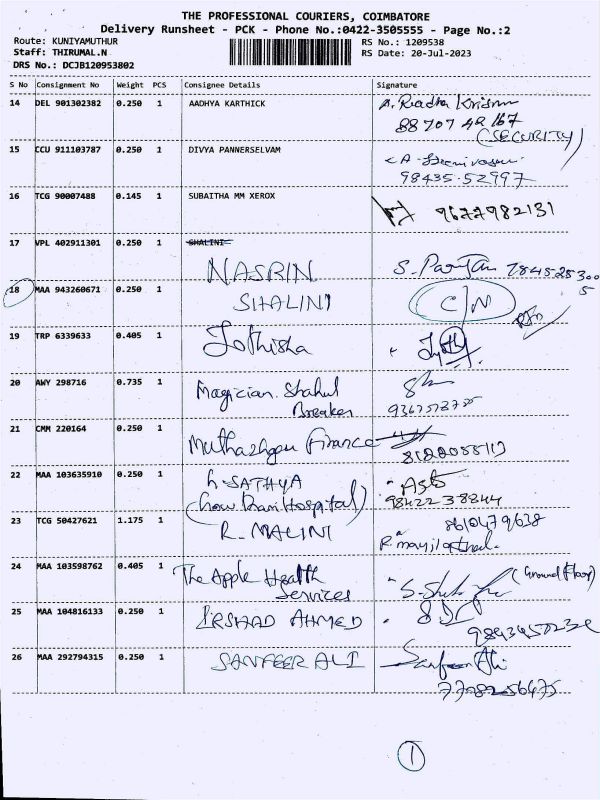 THE PROFESSIONAL COURIERS, COIMBATORE
Delivery Runsheet - PCK - Phone No.:0422-3505555 - Page No.:2
Route: KUNIYAMUTHUR RS No.: 1209538
Staff: THIRUMAL.N RS Date: 20-Jul-2023
DRS No.: DCJB120953802
S No Consignment No Weight PCS Consignee Details Signature
14 DEL 901302382 0.250 1 AADHYA KARTHICK A. Radha Krishnn
88707 42 167
(SECURITY)
15 CCU 911103787 0.250 1 DIVYA PANNERSELVAM
98435-52997
16 TCG 90007488 0.145 1 SUBAITHA MM XEROX 9677982131
17 VPL 402911301 0.250 1 SHALINI
NASRIN
18 MAA 943260671 0.250 1 SHALINI C/N
19 TRP 6339633 0.405 1 Jothisha
20 AWY 298716 0.735 1 Magician. Shahul
Breaker
21 CMM 220164 0.250 1 Muthazhgu Finance
22 MAA 103635910 0.250 1 SATHYA
Hospital) 98422 38844
23 TCG 50427621 1.175 1 R. MALINI 8610479638
24 MAA 103598762 0.405 1 The Apple Health (Ground Floor)
Services
25 MAA 104816133 0.250 1 IRSHAD AHMED
26 MAA 292794315 0.250 1 SANFEER ALI Sanfeer Ali
1